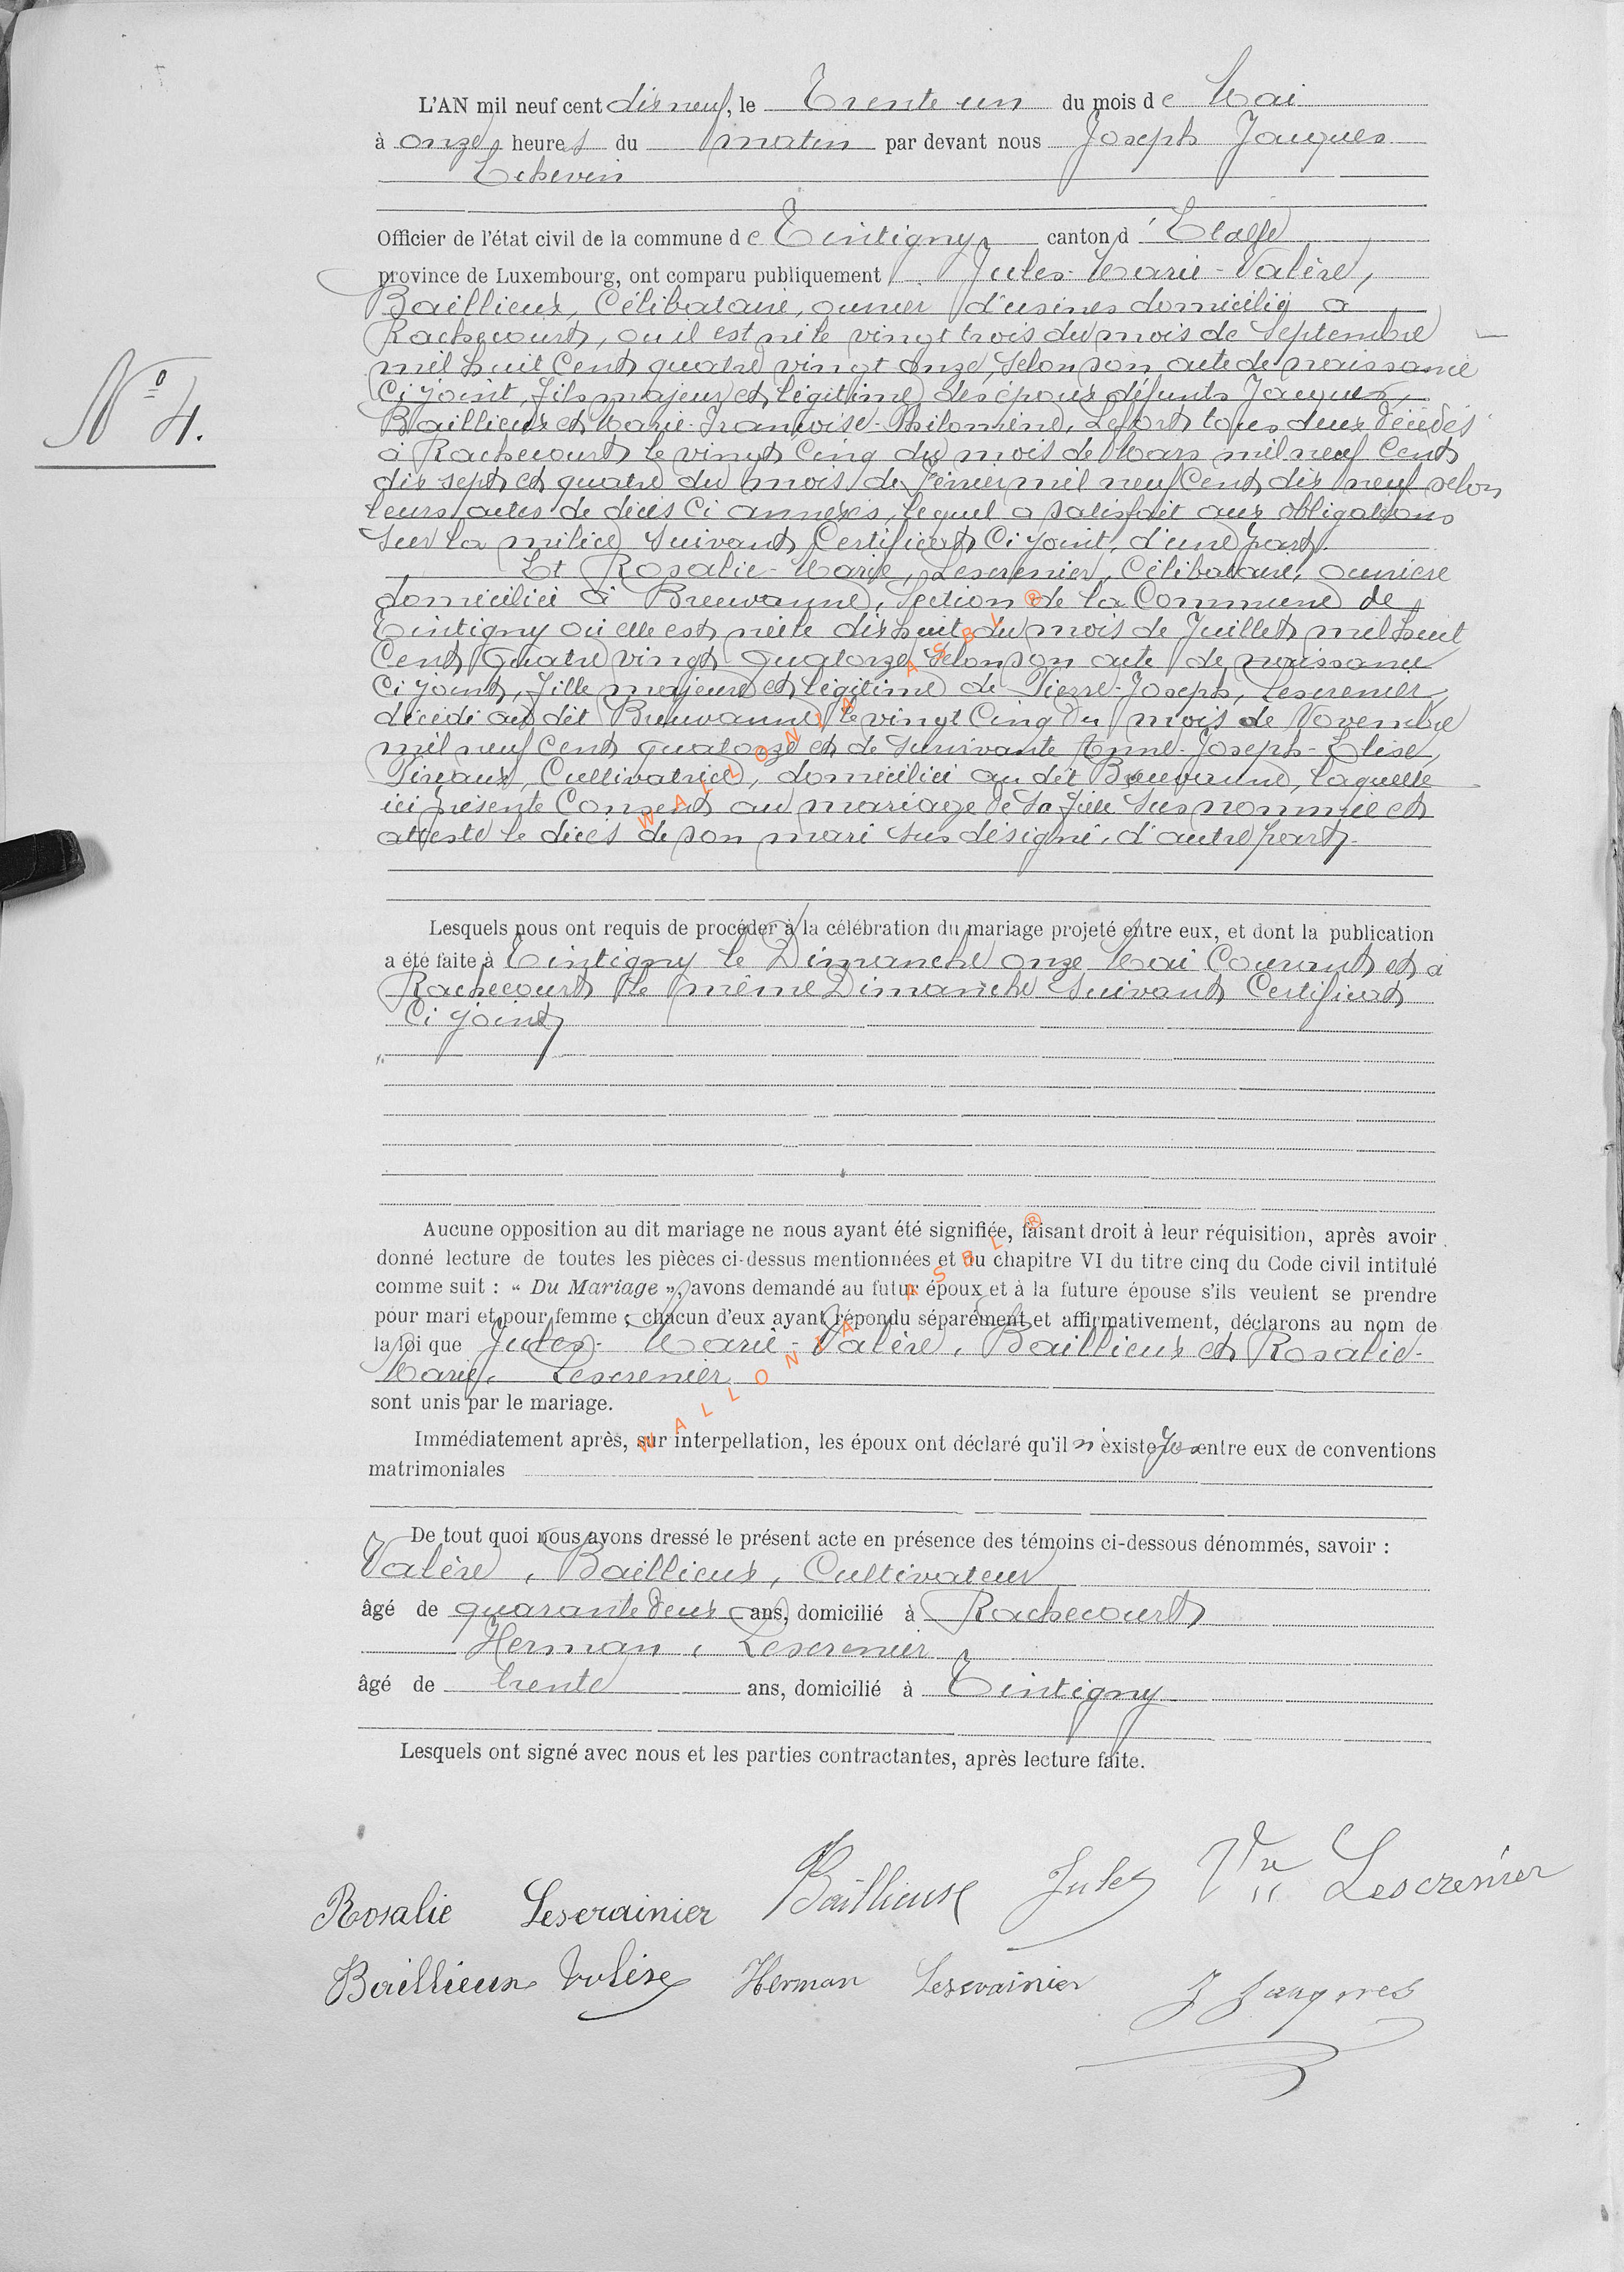 N° 4.
L'AN mil neuf cent dix neuf, le Trente un du mois de Mai
à onze heures du matin par devant nous Joseph Jacques
Echevin
Officier de l'état civil de la commune de Tintigny canton d'Etalle
province de Luxembourg, ont comparu publiquement Jules-Marie-Valère,
Baillieux, Célibataire, ouvrier d'usines domicilié à
Rachecourt, ou il est né le vingt trois du mois de Septembre
mil huit Cent quatre vingt onze, selon son acte de naissance
Ci joint, fils majeur et légitime des époux défunts Jacques,
Baillieux et Marie-Françoise-Philomène, Lefort tous deux décédés
à Rachecourt le vingt Cinq du mois de Mars mil neuf Cent
dix sept et quatre du mois de Février mil neuf Cent dix neuf selon
leurs actes de décès Ci annexés, lequel a satisfait aux obligations
sur la milice suivant Certificat Ci joint, d'une part.
Et Rosalie-Marie, Lescrenier, Célibataire, ouvrière
domiciliée à Breuvanne, Section de la Commune de
Tintigny où elle est née le dix huit du mois de Juillet mil huit
Cent Quatre vingt quatorze selon son acte de naissance
Ci joint, fille majeure et légitime de Pierre-Joseph, Lescrenier,
décédé au dit Breuvanne le vingt Cinq du mois de Novembre
mil neuf Cent quatorze et de survivante Anne-Joseph-Élise,
Pireaux, Cultivatrice, domiciliée au dit Breuvanne, laquelle
ici présente Consent au mariage de sa fille sus nommée et
atteste le décès de son mari sus désigné, d'autre part.
Lesquels nous ont requis de procéder à la célébration du mariage projeté entre eux, et dont la publication
a été faite à Tintigny le Dimanche onze Mai Courant et à
Rachecourt le même Dimanche suivant Certificat
Ci joint
Aucune opposition au dit mariage ne nous ayant été signifiée, faisant droit à leur réquisition, après avoir
donné lecture de toutes les pièces ci-dessus mentionnées et du chapitre VI du titre cinq du Code civil intitulé
comme suit : « Du Mariage », avons demandé au futur époux et à la future épouse s'ils veulent se prendre
pour mari et pour femme ; chacun d'eux ayant répondu séparément et affirmativement, déclarons au nom de
la loi que Jules-Marie-Valère, Baillieux et Rosalie-
Marie, Lescrenier
sont unis par le mariage.
Immédiatement après, sur interpellation, les époux ont déclaré qu'il n'existe pas entre eux de conventions
matrimoniales
De tout quoi nous avons dressé le présent acte en présence des témoins ci-dessous dénommés, savoir :
Valère, Baillieux, Cultivateur
âgé de quarante deux ans, domicilié à Rachecourt
Herman, Lescrenier
âgé de trente ans, domicilié à Tintigny
Lesquels ont signé avec nous et les parties contractantes, après lecture faite.
Rosalie Lescrainier Baillieux Jules Vve Lescrenier
Baillieux Valère Herman Lescrainier J Jacques
WALLONIA ASBL ®
WALLONIA ASBL ®